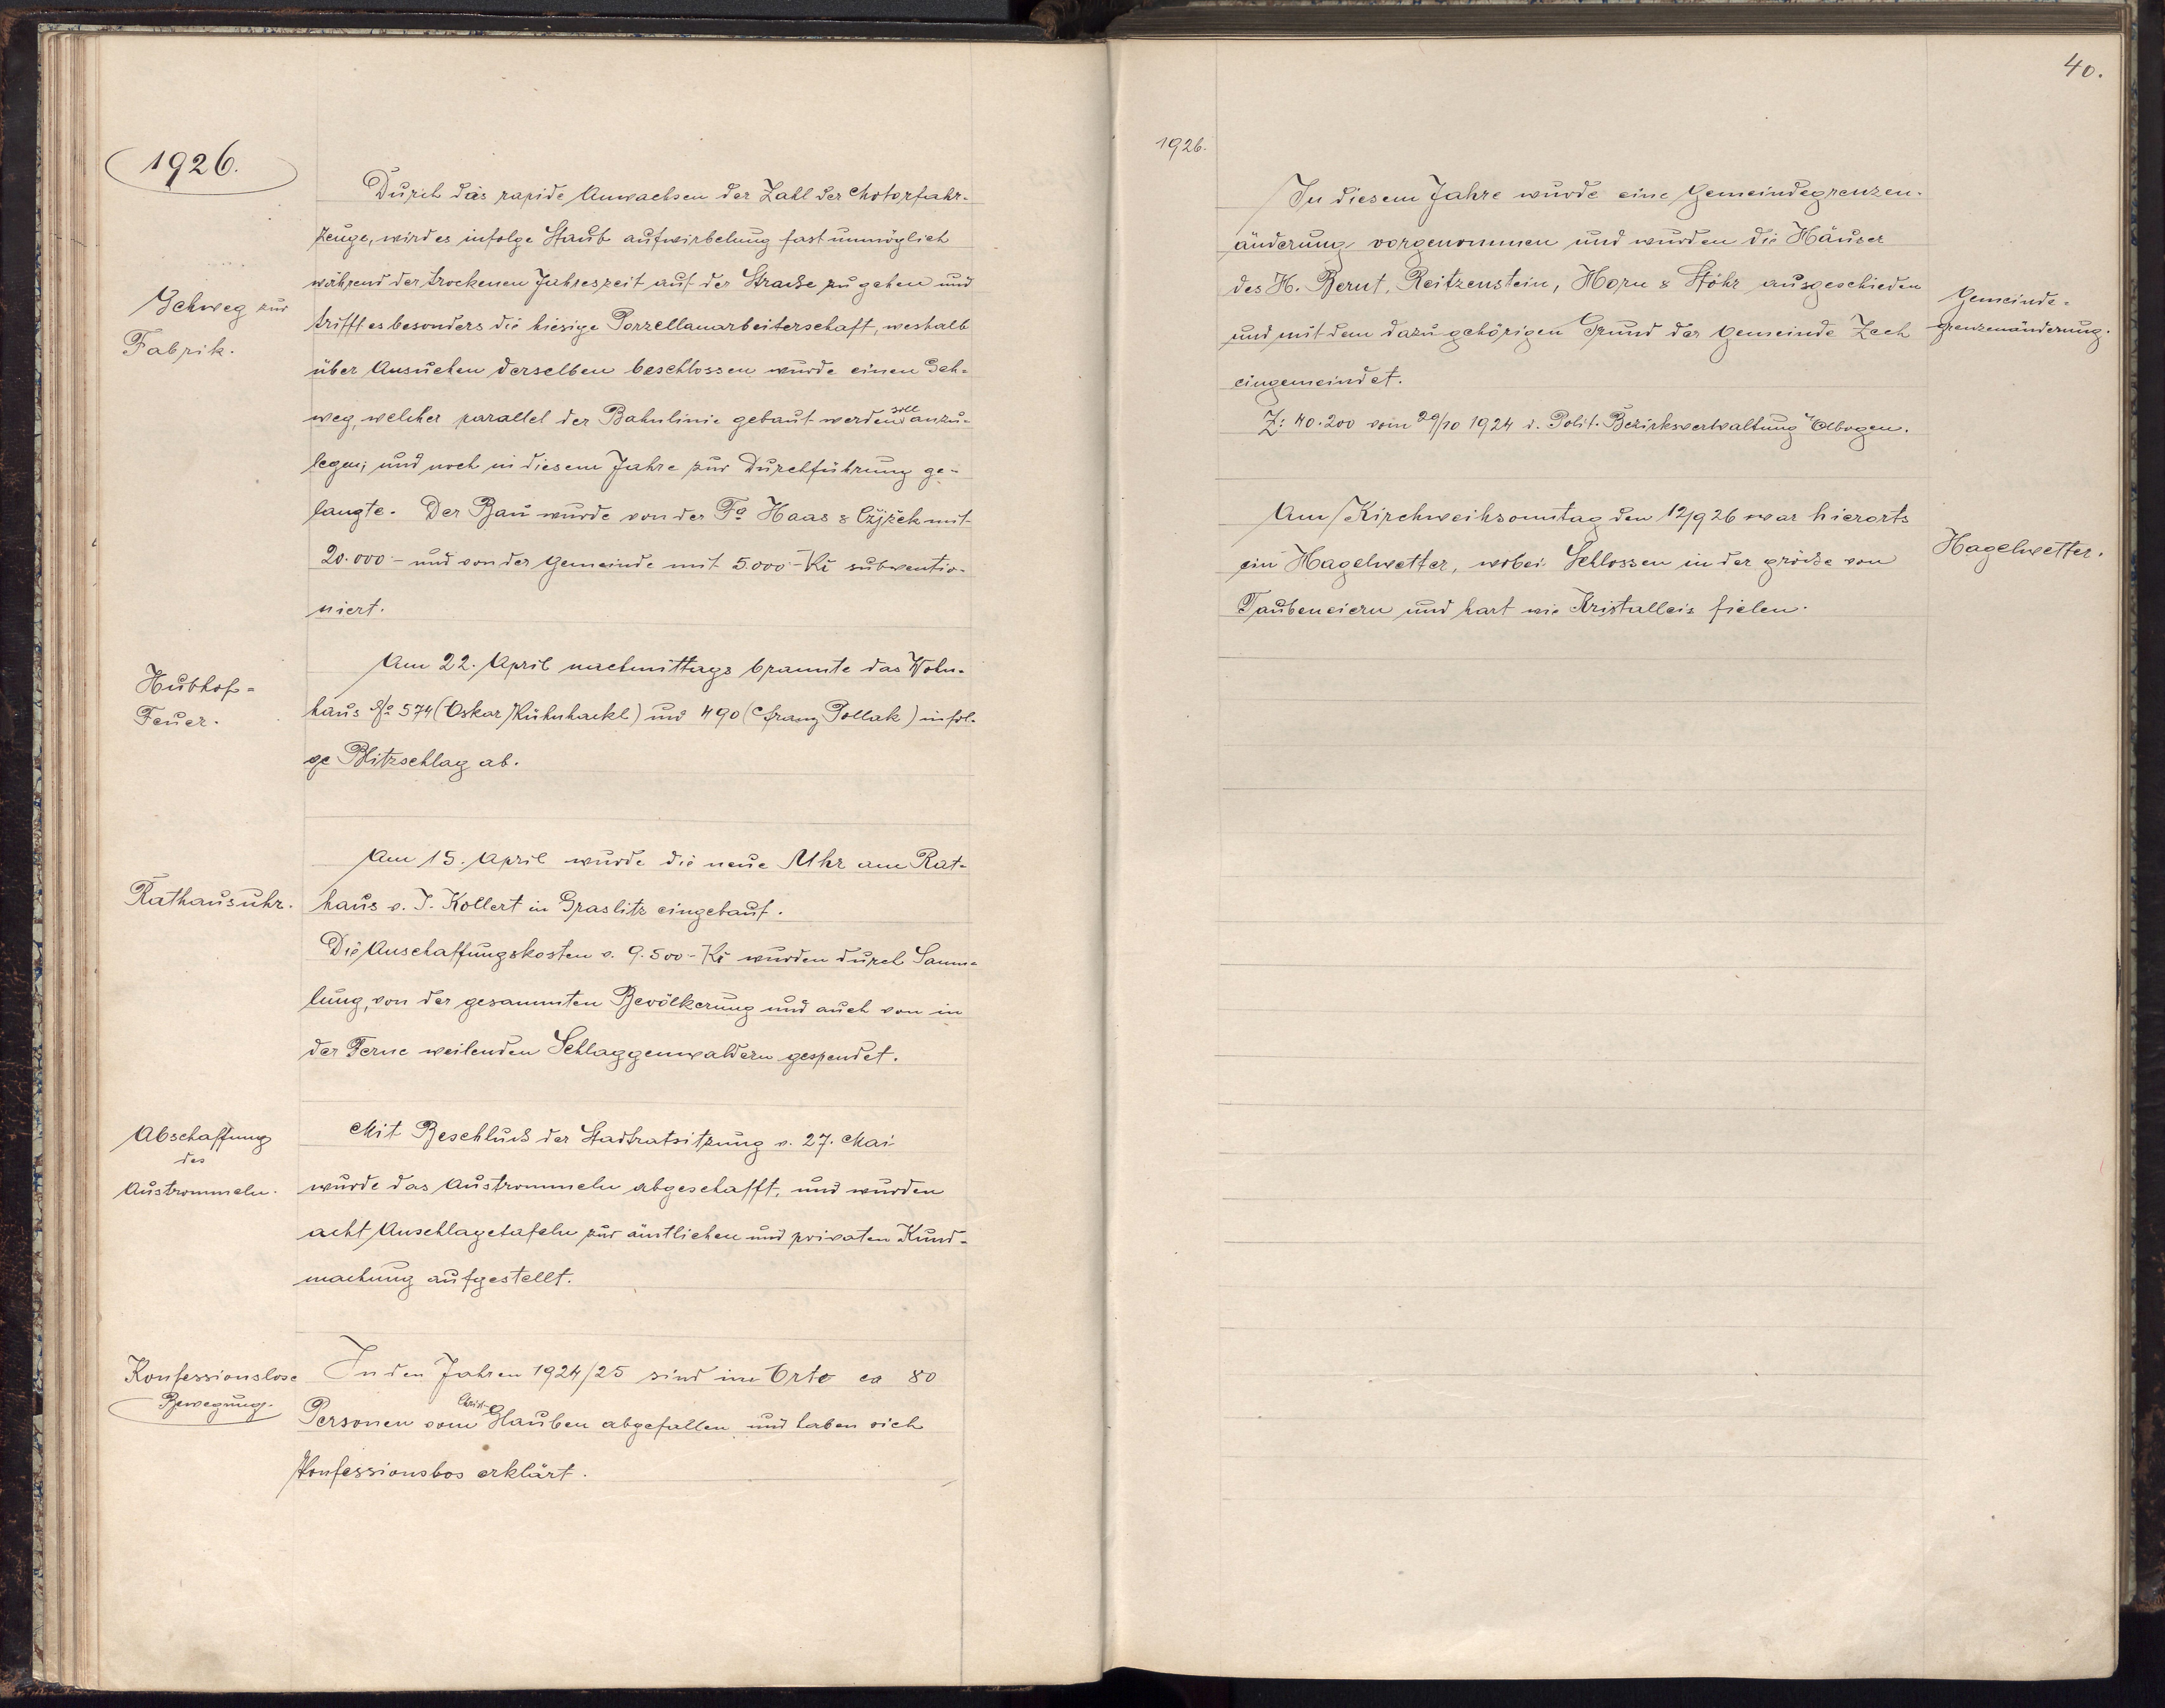 1926.
Durch das rapide Anwachsen der Zahl der Motorfahr-
zeuge, wird es infolge Staub aufwirbelung fast unmöglich
während der trockenen Jahreszeit auf der Straße zu gehen und
Gehweg zur
Fabrik.
trifft es besonders die hiesige Porzellanarbeiterschaft, weshalb
über Ansuchen derselben beschlossen wurde einen Geh-
weg, welcher parallel der Bahnlinie gebaut werden soll anzu-
legen; und noch in diesem Jahre zur Durchführung ge-
langte. Der Bau wurde von der Fa Haas & Cžjžek mit
20.000 - und von der Gemeinde mit 5.000 - Kč subventio-
niert.
Hubhof-
Feuer.
Am 22. April nachmittags brannte das Wohn-
haus No 574 (Oskar Kühnhackl) und 490 (Franz Pollak) infol-
ge Blitzschlag ab.
Rathausuhr.
Am 15. April wurde die neue Uhr am Rat-
haus v. J. Kollert in Graslitz eingebaut.
Die Anschaffungskosten v. 9.500 - Kč wurden durch Samm-
lung, von der gesammten Bevölkerung und auch von in
der Ferne weilenden Schlaggenwaldern gespendet.
Abschaffung
des
Austrommeln.
Mit Beschluß der Stadtratsitzung v. 27. Mai
wurde das Austrommeln abgeschafft, und wurden
acht Anschlagetafeln zur ämtlichen und privaten Kund-
machung aufgestellt.
Konfessionslose
Bewegung.
In den Jahren 1924/25 sind im Orte ca 80
Personen vom Christ-Glauben abgefallen und haben sich
Konfessionslos erklärt.
40.
1926.
In diesem Jahre wurde eine Gemeindegrenzen-
änderung vorgenommen und wurden die Häuser
des H. Bernt, Reitzenstein, Horn & Stöhr ausgeschieden
und mit dem dazu gehörigen Grund der Gemeinde Zech
eingemeindet.
Gemeinde-
grenzenänderung.
Z: 40.200 vom 29/10 1924 d. Polit. Bezirksverwaltung Elbogen.
Am Kirchweihsonntag den 12/9 26 war hierorts
ein Hagelwetter, wobei Schlossen in der größe von
Taubeneiern und hart wie Kristalleis fielen.
Hagelwetter.